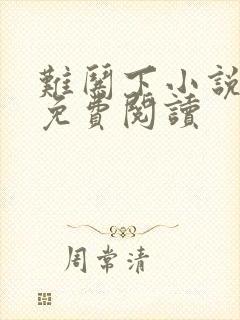 難鬪下小說
免費閱讀
周常清